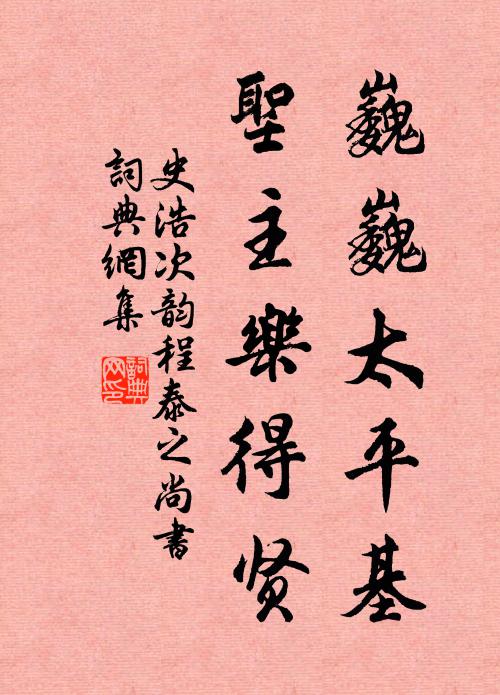 巍巍太平基
聖主樂得贤
史浩次韵程泰之尚書
詞典網集
詞典网印